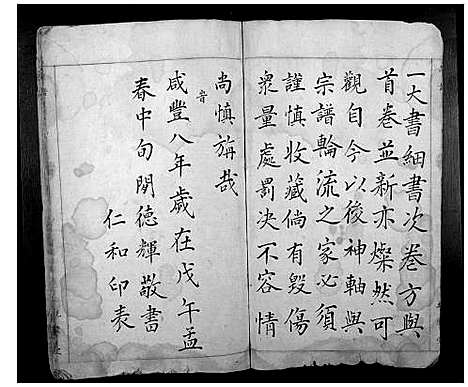 一大書細書次卷方與
首卷並新亦燦然可
觀自今以後神軸與
宗譜輪流之家必須
謹慎收藏倘有毀傷
衆量處罰决不容情
尚慎旃哉
音
咸豐八年歲在戊午孟
春中旬開德輝敬書
仁和印表